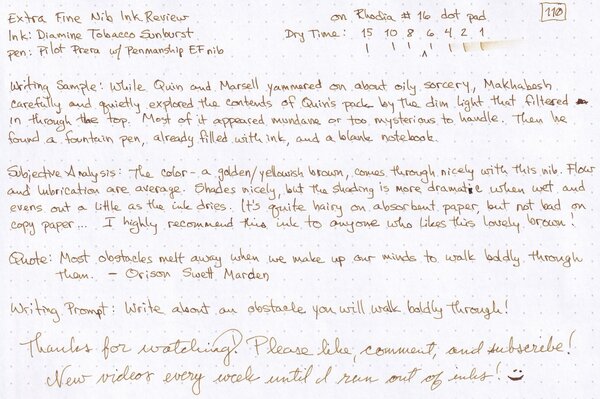 Extra Fine Nib Ink Review on Rhodia #16 dot pad 110
Ink: Diamine Tobacco Sunburst Dry Time: 15 10 8 6 4 2 1
Pen: Pilot Prera w/ Penmanship EF nib
Writing Sample: While Quin and Marsell yammered on about oily sorcery, Makhabesh
carefully and quietly explored the contents of Quin's pack by the dim light that filtered
in through the top. Most of it appeared mundane or too mysterious to handle. Then he
found a fountain pen, already filled with ink, and a blank notebook.
Subjective Analysis: The color - a golden/yellowish brown, comes through nicely with this nib. Flow
and lubrication are average. Shades nicely, but the shading is more dramatic when wet and
evens out a little as the ink dries. It's quite hairy on absorbent paper, but not bad on
copy paper... I highly recommend this ink to anyone who likes this lovely brown!
Quote: Most obstacles melt away when we make up our minds to walk boldly through
them. - Orison Swett Marden
Writing Prompt: Write about an obstacle you will walk boldly through!
Thanks for watching! Please like, comment, and subscribe!
New videos every week until I run out of inks!